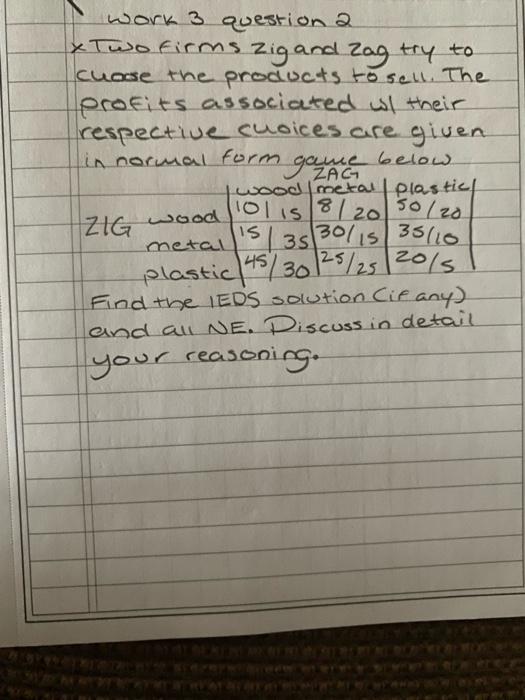 work 3 question 2
x Two Firms Zig and Zag try to
cuose the products to sell. The
profits associated w/ their
respective cuoices are given
in normal form game below
ZAG
wood | metal | plastic |
ZIG wood | 10 / 15 | 8 / 20 | 50 / 20
metal | 15 / 35 | 30 / 15 | 35 / 10
plastic | 45 / 30 | 25 / 25 | 20 / 5
Find the IEDS solution (if any)
and all NE. Discuss in detail
your reasoning.